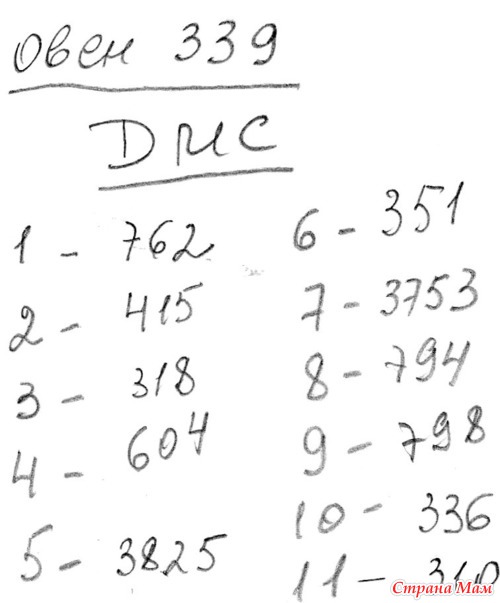 Овен 339
ДМС
1 - 762
2 - 415
3 - 318
4 - 604
5 - 3825
6 - 351
7 - 3753
8 - 794
9 - 798
10 - 336
11 - 310
Страна Мам